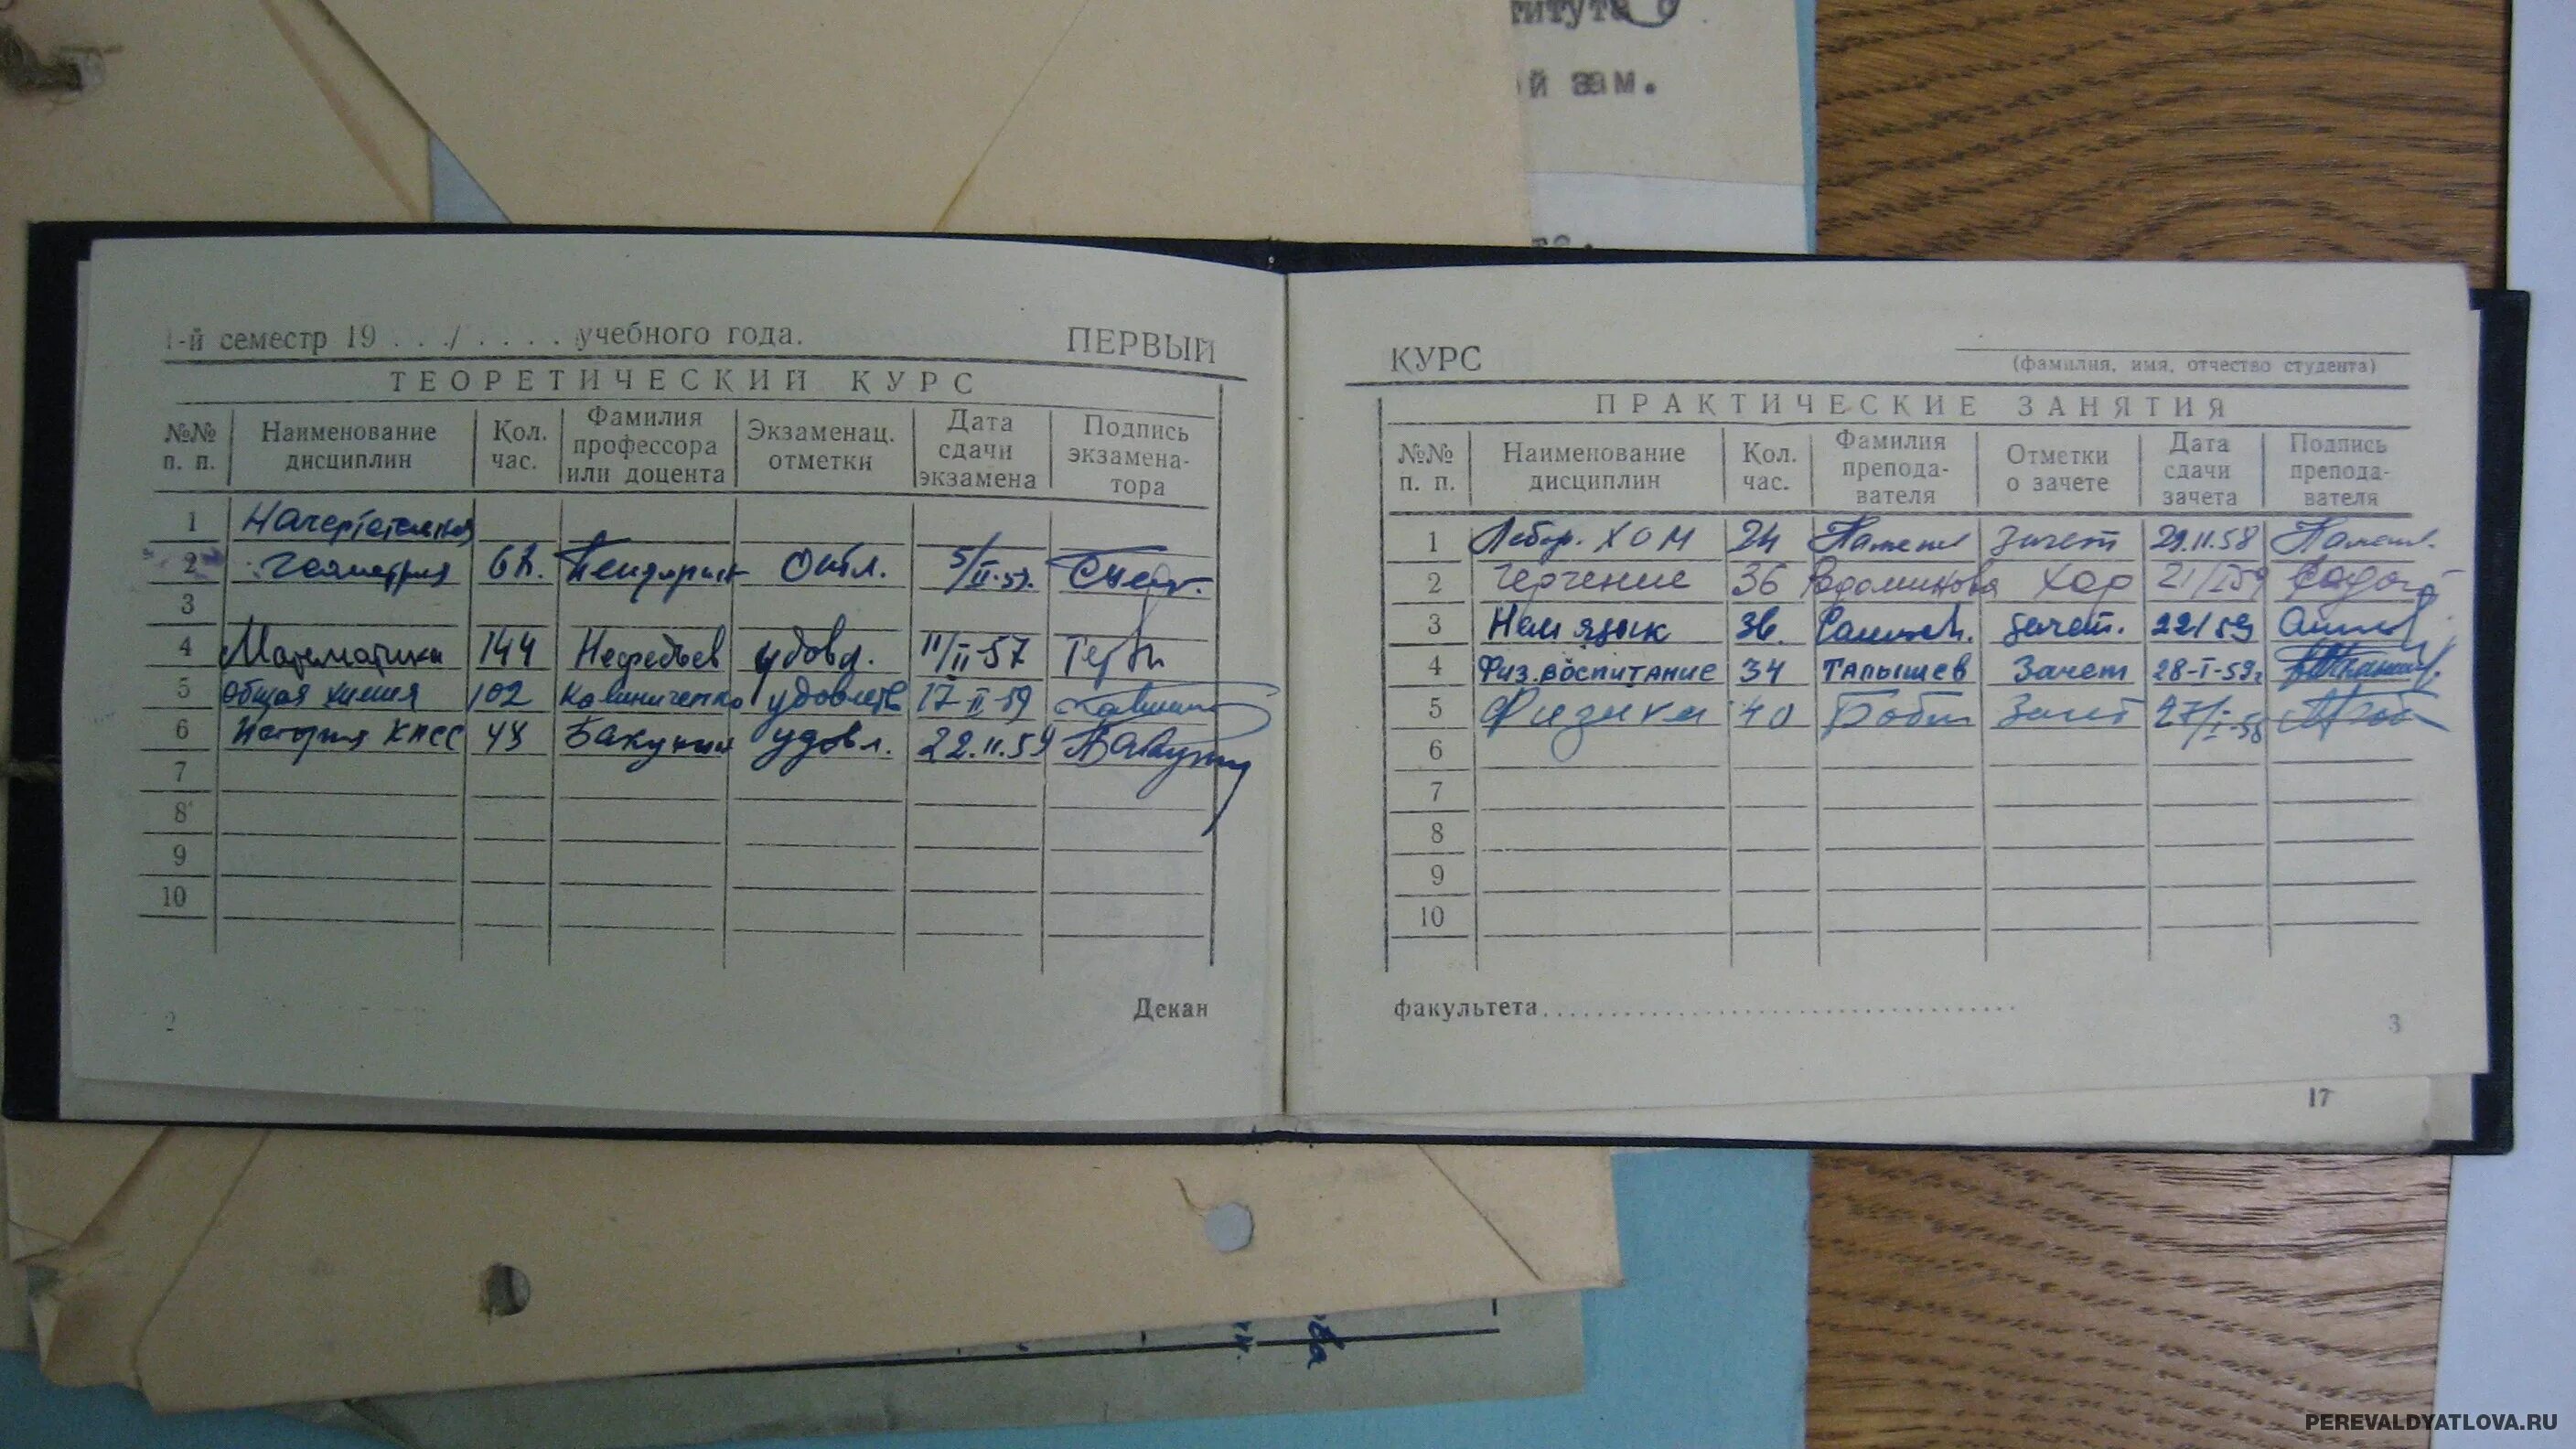 титута
й зам.
1-й семестр 19 . . ./ . . . . . учебного года. ПЕРВЫЙ
ТЕОРЕТИЧЕСКИЙ КУРС
№№ п. п. Наименование дисциплин Кол. час. Фамилия профессора или доцента Экзаменац. отметки Дата сдачи экзамена Подпись экзамена-тора
1 Начертательная
2 геометрия отл. 5/II-59.
3
4 Математика 144 Нефедьев удовл. 11/II-57
5 Общая химия 102 Калиниченко удовлетв 17-II-59
6 История КПСС Бакунин удовл. 22.II.59
7
8
9
10
Декан
2
КУРС
(фамилия, имя, отчество студента)
ПРАКТИЧЕСКИЕ ЗАНЯТИЯ
№№ п. п. Наименование дисциплин Кол. час. Фамилия препода-вателя Отметки о зачете Дата сдачи зачета Подпись препода-вателя
1 24 зачет 29.II.58
2 Черчение 36 хор 21/I59
3 Нем язык 36. зачет. 22/59
4 Физ.воспитание 34 Тапышев Зачет 28-I-59г
5 Физика 40 27/I-58
6
7
8
9
10
факультета
3
17
PEREVALDYATLOVA.RU